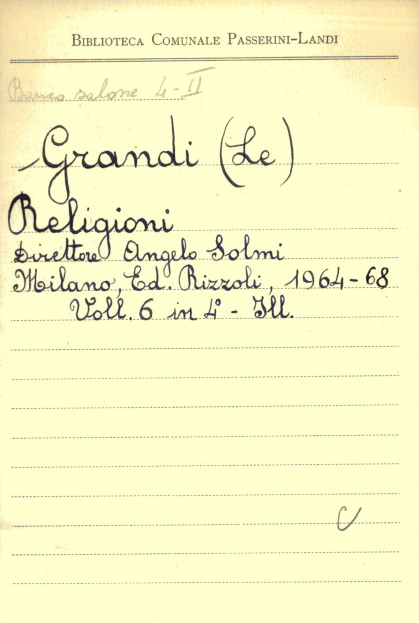 Biblioteca Comunale Passerini-Landi
Banco salone 4-II
Grandi (Le)
Religioni
Direttore Angelo Solmi
Milano, Ed. Rizzoli, 1964-68
Voll. 6 in 4° - Ill.
C